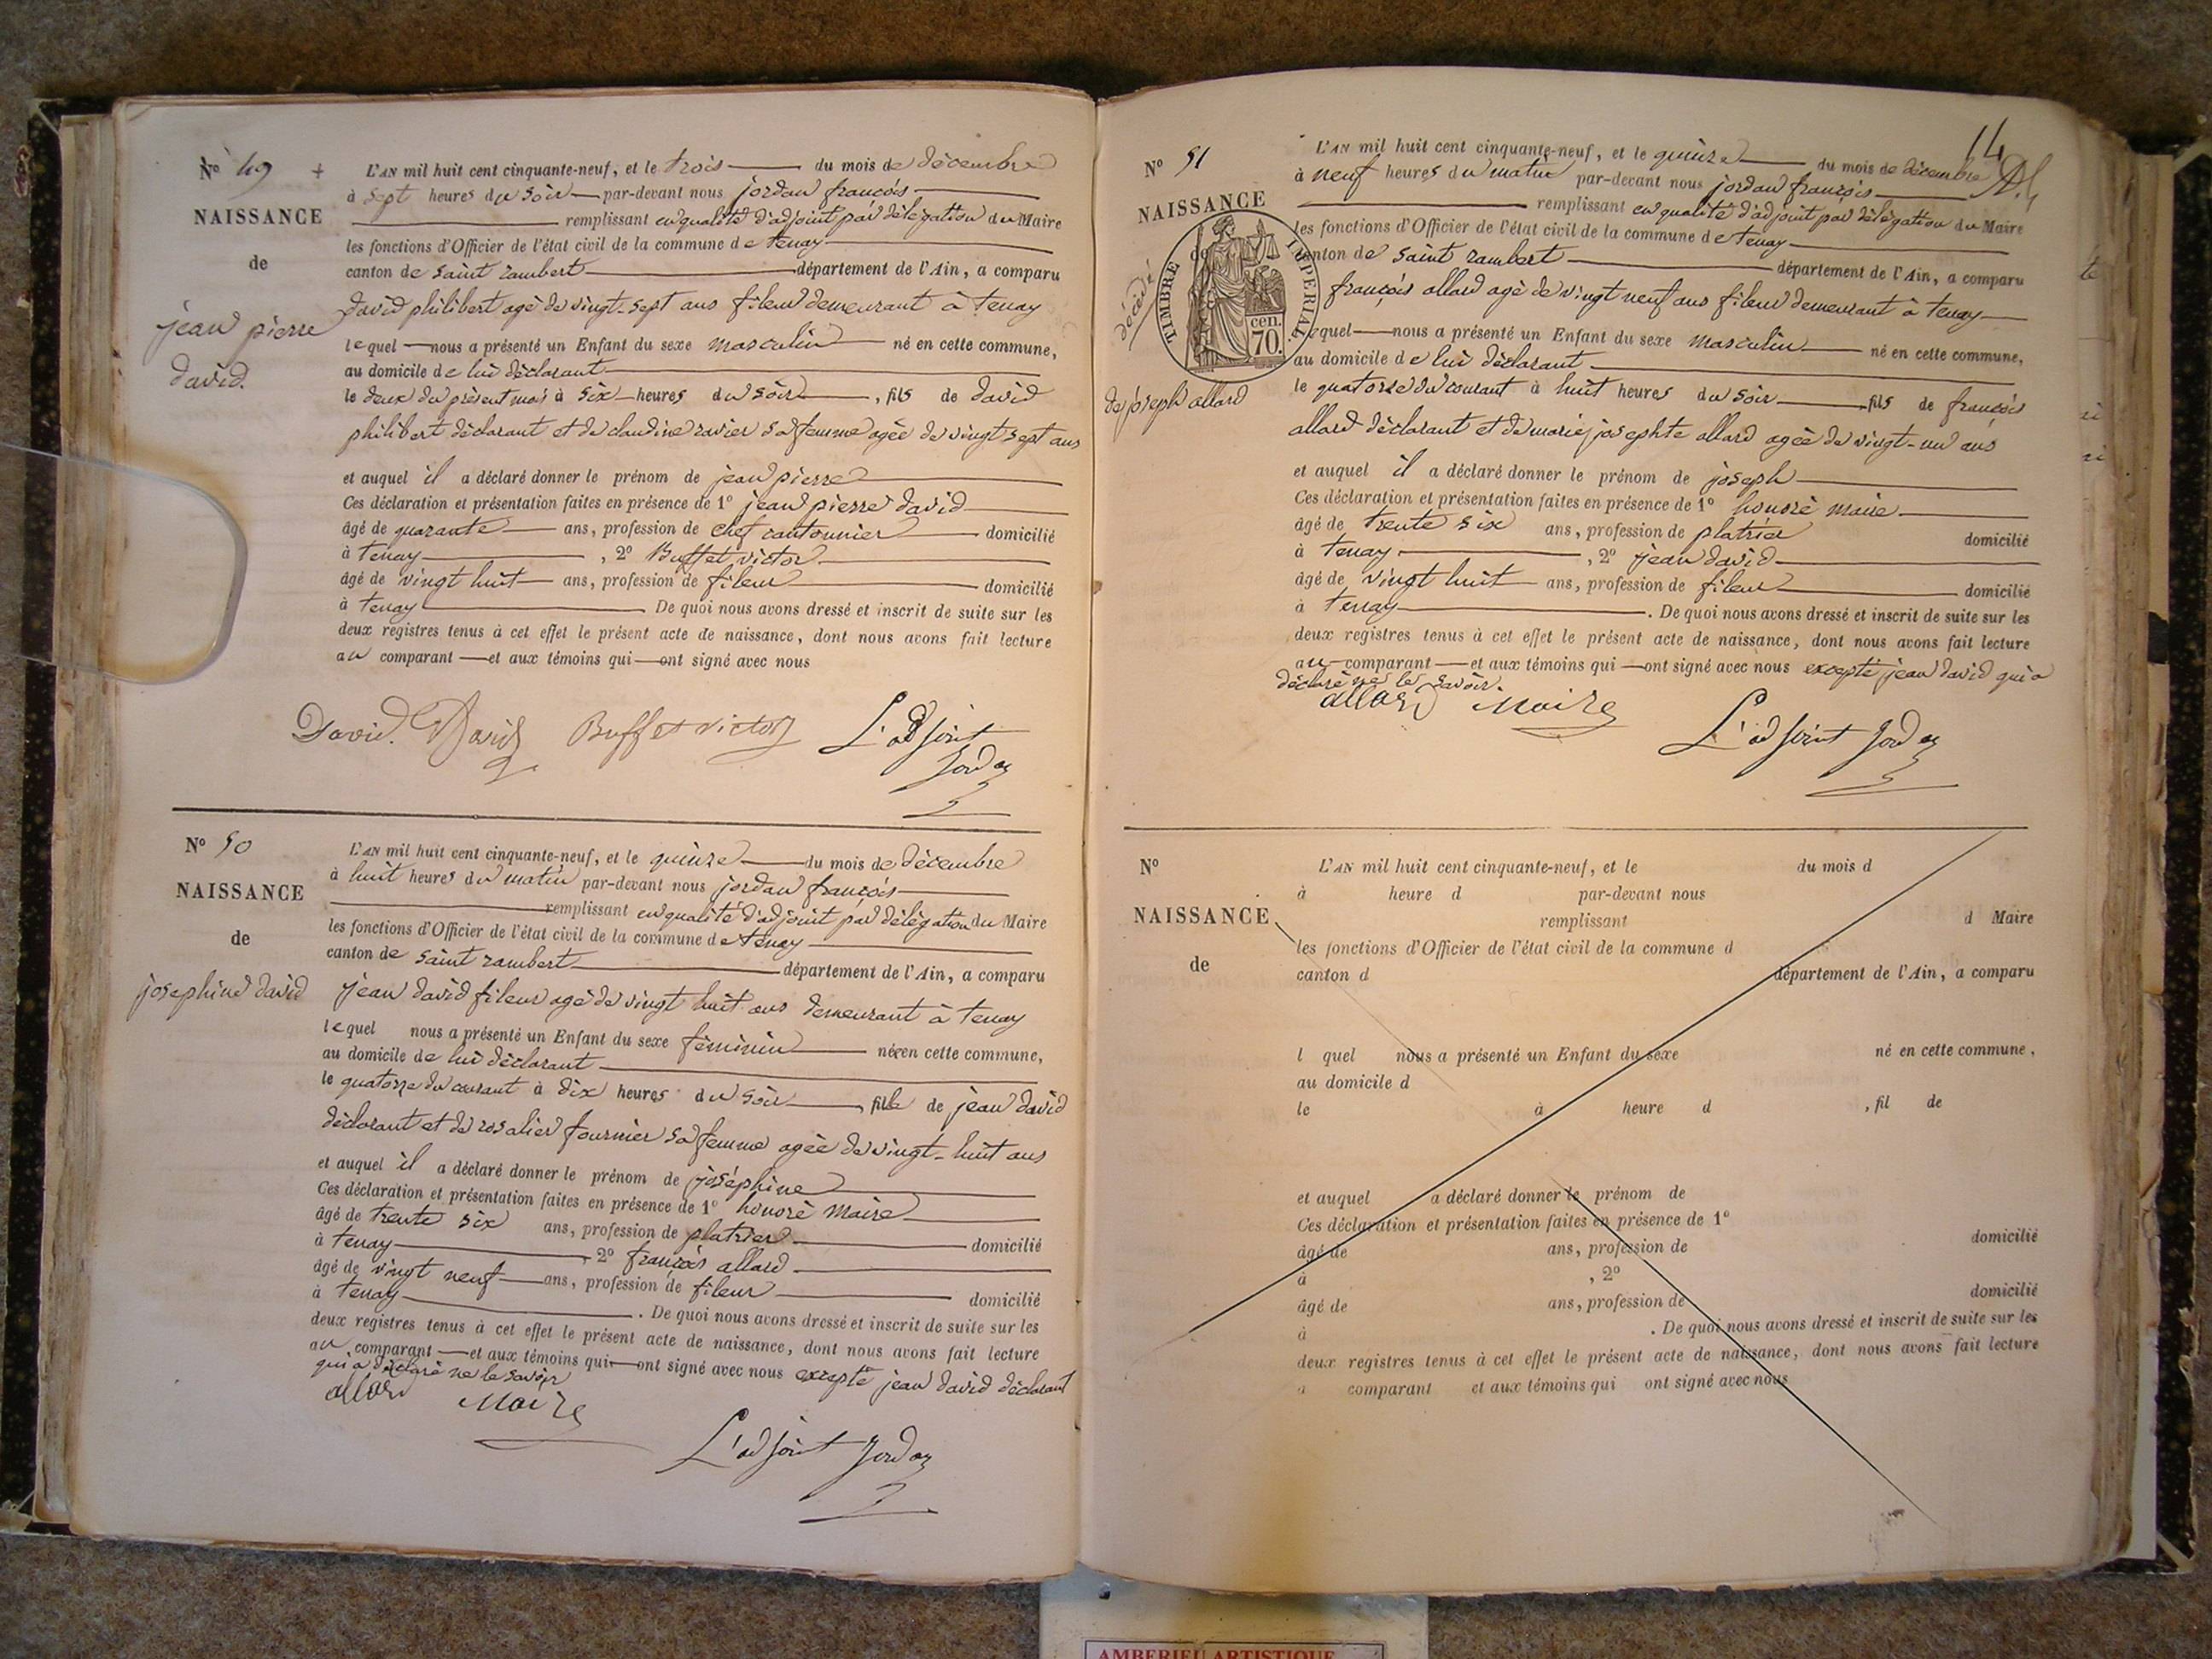 N° 49 +
NAISSANCE
de
jean pierre
david.
L'AN mil huit cent cinquante-neuf, et le trois du mois de décembre
à sept heures du soir par-devant nous jordan françois
remplissant en qualité d'adjoint par délégation du Maire
les fonctions d'Officier de l'état civil de la commune de tenay
canton de saint rambert département de l'Ain, a comparu
david philibert agé de vingt-sept ans fileur demeurant à tenay
lequel nous a présenté un Enfant du sexe masculin né en cette commune,
au domicile de lui déclarant
le deux du présent mois à six heures du soir, fils de david
philibert déclarant et de claudine ravier sa femme agée de vingt sept ans
et auquel il a déclaré donner le prénom de jean pierre
Ces déclaration et présentation faites en présence de 1° jean pierre david
âgé de quarante ans, profession de chef cantonnier domicilié
à tenay, 2° Buffet victor
âgé de vingt huit ans, profession de fileur domicilié
à tenay. De quoi nous avons dressé et inscrit de suite sur les
deux registres tenus à cet effet le présent acte de naissance, dont nous avons fait lecture
au comparant et aux témoins qui ont signé avec nous
David. David Buffet victor L'adjoint
Jordan
N° 50
NAISSANCE
de
josephine david
L'AN mil huit cent cinquante-neuf, et le quinze du mois de décembre
à huit heures du matin par-devant nous jordan françois
remplissant en qualité d'adjoint par délégation du Maire
les fonctions d'Officier de l'état civil de la commune de tenay
canton de saint rambert département de l'Ain, a comparu
jean david fileur agé de vingt huit ans demeurant à tenay
lequel nous a présenté un Enfant du sexe féminin née en cette commune,
au domicile de lui déclarant
le quatorze du courant à dix heures du soir, fille de jean david
déclarant et de rosalier fournier sa femme agée de vingt-huit ans
et auquel il a déclaré donner le prénom de joséphine
Ces déclaration et présentation faites en présence de 1° honoré maire
âgé de trente six ans, profession de platrier domicilié
à tenay, 2° françois allard
âgé de vingt neuf ans, profession de fileur domicilié
à tenay. De quoi nous avons dressé et inscrit de suite sur les
deux registres tenus à cet effet le présent acte de naissance, dont nous avons fait lecture
au comparant et aux témoins qui ont signé avec nous excepté jean david déclarant
qui a déclaré ne le savoir
allard Maire
L'adjoint Jordan
14
N° 51
NAISSANCE
de
TIMBRE IMPERIAL
cen.
70.
décédé
de joseph allard
L'AN mil huit cent cinquante-neuf, et le quinze du mois de décembre
à neuf heures du matin par-devant nous jordan françois
remplissant en qualité d'adjoint par délégation du Maire
les fonctions d'Officier de l'état civil de la commune de tenay
canton de saint rambert département de l'Ain, a comparu
françois allard agé de vingt neuf ans fileur demeurant à tenay
lequel nous a présenté un Enfant du sexe masculin né en cette commune,
au domicile de lui déclarant
le quatorze du courant à huit heures du soir fils de françois
allard déclarant et de marie josephte allard agée de vingt-un ans
et auquel il a déclaré donner le prénom de joseph
Ces déclaration et présentation faites en présence de 1° honoré maire
âgé de trente six ans, profession de platrier domicilié
à tenay, 2° jean david
âgé de vingt huit ans, profession de fileur domicilié
à tenay. De quoi nous avons dressé et inscrit de suite sur les
deux registres tenus à cet effet le présent acte de naissance, dont nous avons fait lecture
au comparant et aux témoins qui ont signé avec nous excepté jean david qui a
déclaré ne le savoir.
allard Maire
L'adjoint Jordan
N°
NAISSANCE
de
L'AN mil huit cent cinquante-neuf, et le du mois d
à heure d par-devant nous
remplissant d Maire
les fonctions d'Officier de l'état civil de la commune d
canton d département de l'Ain, a comparu
l quel nous a présenté un Enfant du sexe né en cette commune,
au domicile d
le à heure d , fil de
et auquel a déclaré donner le prénom de
Ces déclaration et présentation faites en présence de 1°
âgé de ans, profession de domicilié
à , 2°
âgé de ans, profession de domicilié
à . De quoi nous avons dressé et inscrit de suite sur les
deux registres tenus à cet effet le présent acte de naissance, dont nous avons fait lecture
a comparant et aux témoins qui ont signé avec nous
AMBERIEU ARTISTIQUE